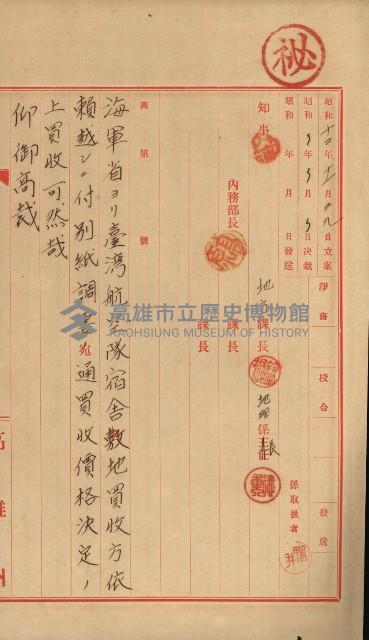 秘
昭和十二年十一月二九日立案
昭和 年 月 日決裁
昭和 年 月 日發送
淨書
校合
發送
知事
內務部長
地方課長
課長
課長
地理係長
係取扱者
高第 號
海軍省ヨリ臺灣航空隊宿舍敷地買收方依
賴越シニ付別紙調書苑通買收價格決定ノ
上買收可然哉
仰御高裁
高雄州
高雄市立歷史博物館
KAOHSIUNG MUSEUM OF HISTORY